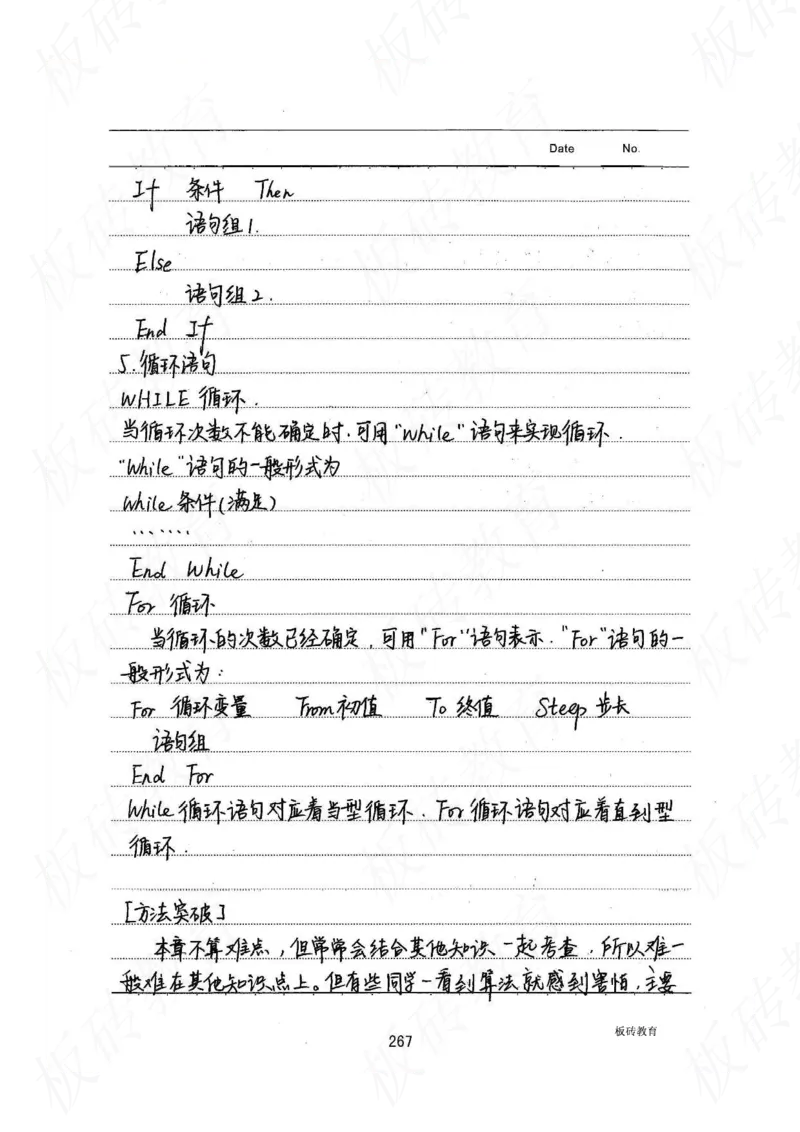 Date No.
If 条件 Then
语句组1.
Else
语句组2.
End If
5.循环语句
WHILE 循环.
当循环次数不能确定时,可用"While"语句来实现循环.
"While"语句的一般形式为
While 条件(满足)
.......
End While
For 循环
当循环的次数已经确定,可用"For"语句表示."For"语句的一
般形式为:
For 循环变量 From初值 To 终值 Steep 步长
语句组
End For
While循环语句对应着当型循环.For循环语句对应着直到型
循环.
[方法突破]
本章不算难点,但常常会结合其他知识一起考查,所以难一
般难在其他知识点上。但有些同学一看到算法就感到害怕,主要
板砖教育
267